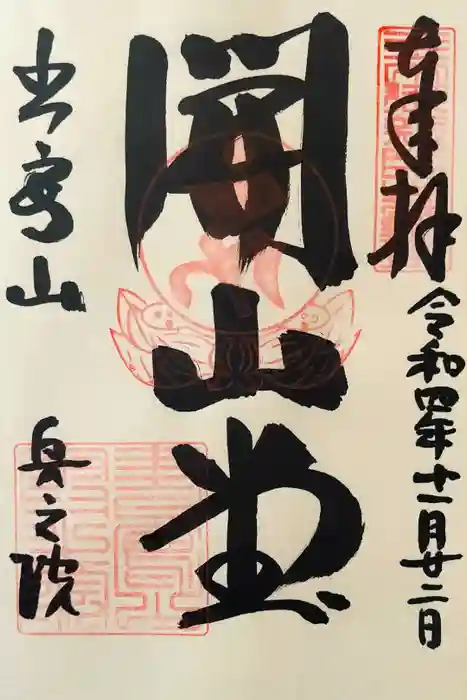 奉拝
令和四年十一月廿二日
開山堂
書寫山
奥之院